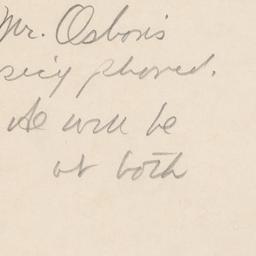 Mr. Osborn's
secy phoned.
He will be
at both